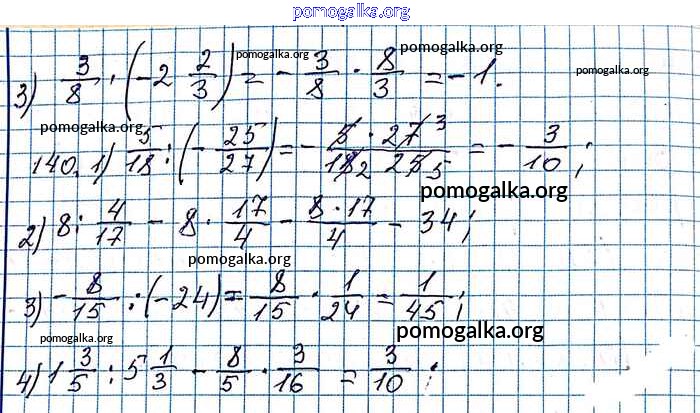 pomogalka.org
3) 3/8 : (-2 2/3) = - 3/8 · 8/3 = -1.
pomogalka.org
pomogalka.org
pomogalka.org
pomogalka.org
140. 1) 5/18 : (- 25/27) = - 5 · 27 3/18 2 25 5 = - 3/10;
pomogalka.org
2) 8 : 4/17 - 8 · 17/4 - 8 · 17/4 - 34;
pomogalka.org
3) - 8/15 : (-24) = 8/15 · 1/24 = 1/45;
pomogalka.org
pomogalka.org
4) 1 3/5 : 5 1/3 - 8/5 · 3/16 = 3/10;